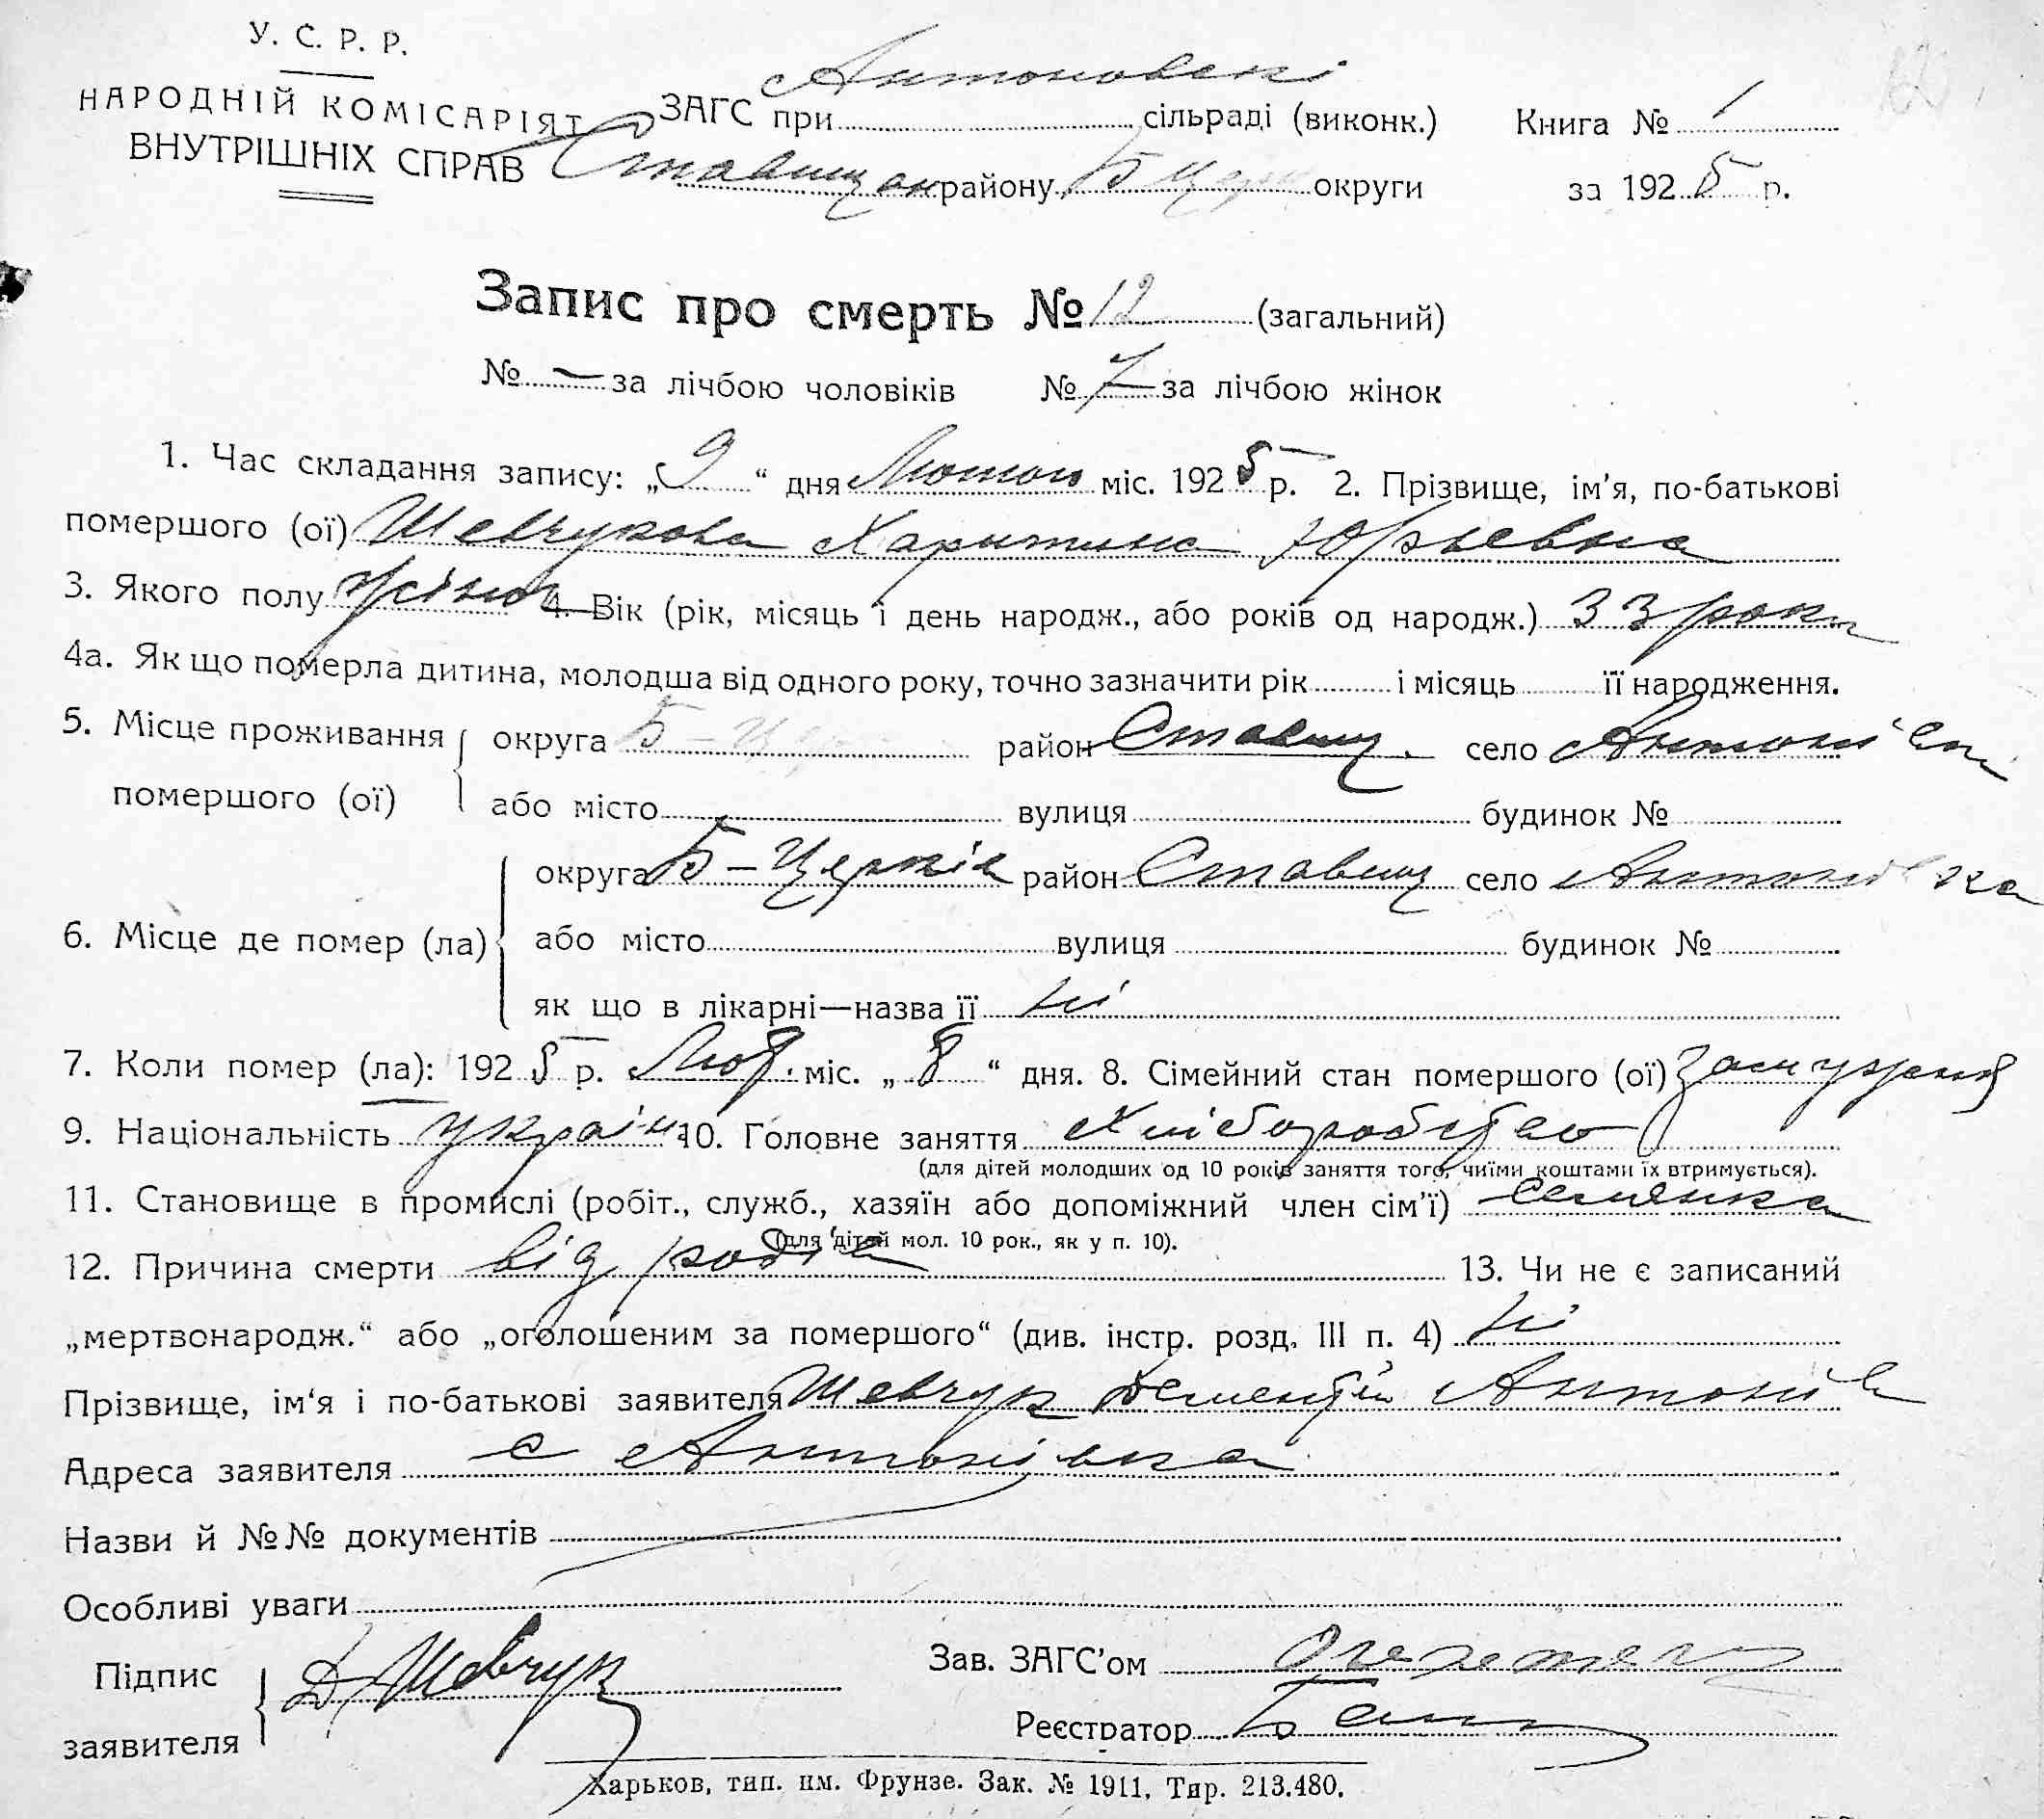 У. С. Р. Р.
НАРОДНІЙ КОМІСАРІЯТ
ВНУТРІШНІХ СПРАВ
ЗАГС при Антоновскі сільраді (виконк.) Книга № 1
Ставищан району Б Церк округи за 1925 р.
Запис про смерть № 12 (загальний)
№ — за лічбою чоловіків № 7 за лічбою жінок
1. Час складання запису: „9“ дня Лютого міс. 1925 р. 2. Прізвище, ім’я, по-батькові
помершого (ої) Шевчукова Харитина Юрьевна
3. Якого полу жіноч 4. Вік (рік, місяць і день народж., або років од народж.) 33 роки
4а. Як що померла дитина, молодша від одного року, точно зазначити рік і місяць її народження.
5. Місце проживання помершого (ої) округа Б-Церк район Ставищ. село Антонівк
або місто вулиця будинок №
6. Місце де помер (ла) округа Б-Церків район Ставищ село Антонівка
або місто вулиця будинок №
як що в лікарні—назва її ні
7. Коли помер (ла): 1925 р. Лют. міс. „8“ дня. 8. Сімейний стан помершого (ої) замужня
9. Національність україн. 10. Головне заняття Хліборобство
(для дітей молодших од 10 років заняття того, чиїми коштами їх втримується).
11. Становище в промислі (робіт., служб., хазяїн або допоміжний член сім’ї) селянка
(для дітей мол. 10 рок., як у п. 10).
12. Причина смерти від родів 13. Чи не є записаний
„мертвонародж.“ або „оголошеним за помершого“ (див. інстр. розд. III п. 4) ні
Прізвище, ім‘я і по-батькові заявителя Шевчук Дементій Антонів
Адреса заявителя с Антонівка
Назви й №№ документів
Особливі уваги
Підпис заявителя Д Шевчук
Зав. ЗАГС’ом
Реєстратор
Харьков, тип. им. Фрунзе. Зак. № 1911. Тир. 213.480.